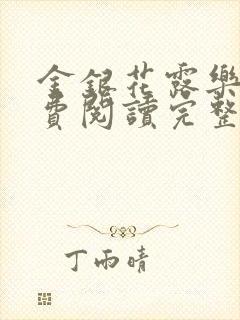 金銀花露樂
費閱讀完整
丁雨晴